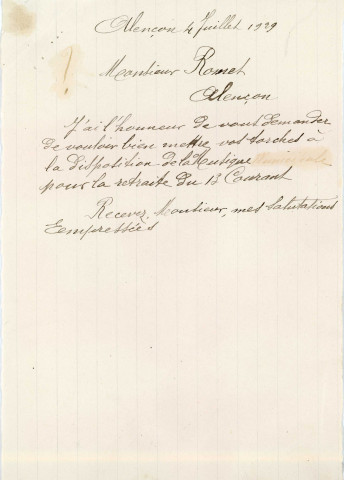 Alençon 4 Juillet 1929
Monsieur Romet
Alençon
J'ai l'honneur de vous demander
de vouloir bien mettre vos torches à
la disposition de la Musique Municipale
pour la retraite du 13 Courant
Recevez, Monsieur, mes Salutations
Eempressées